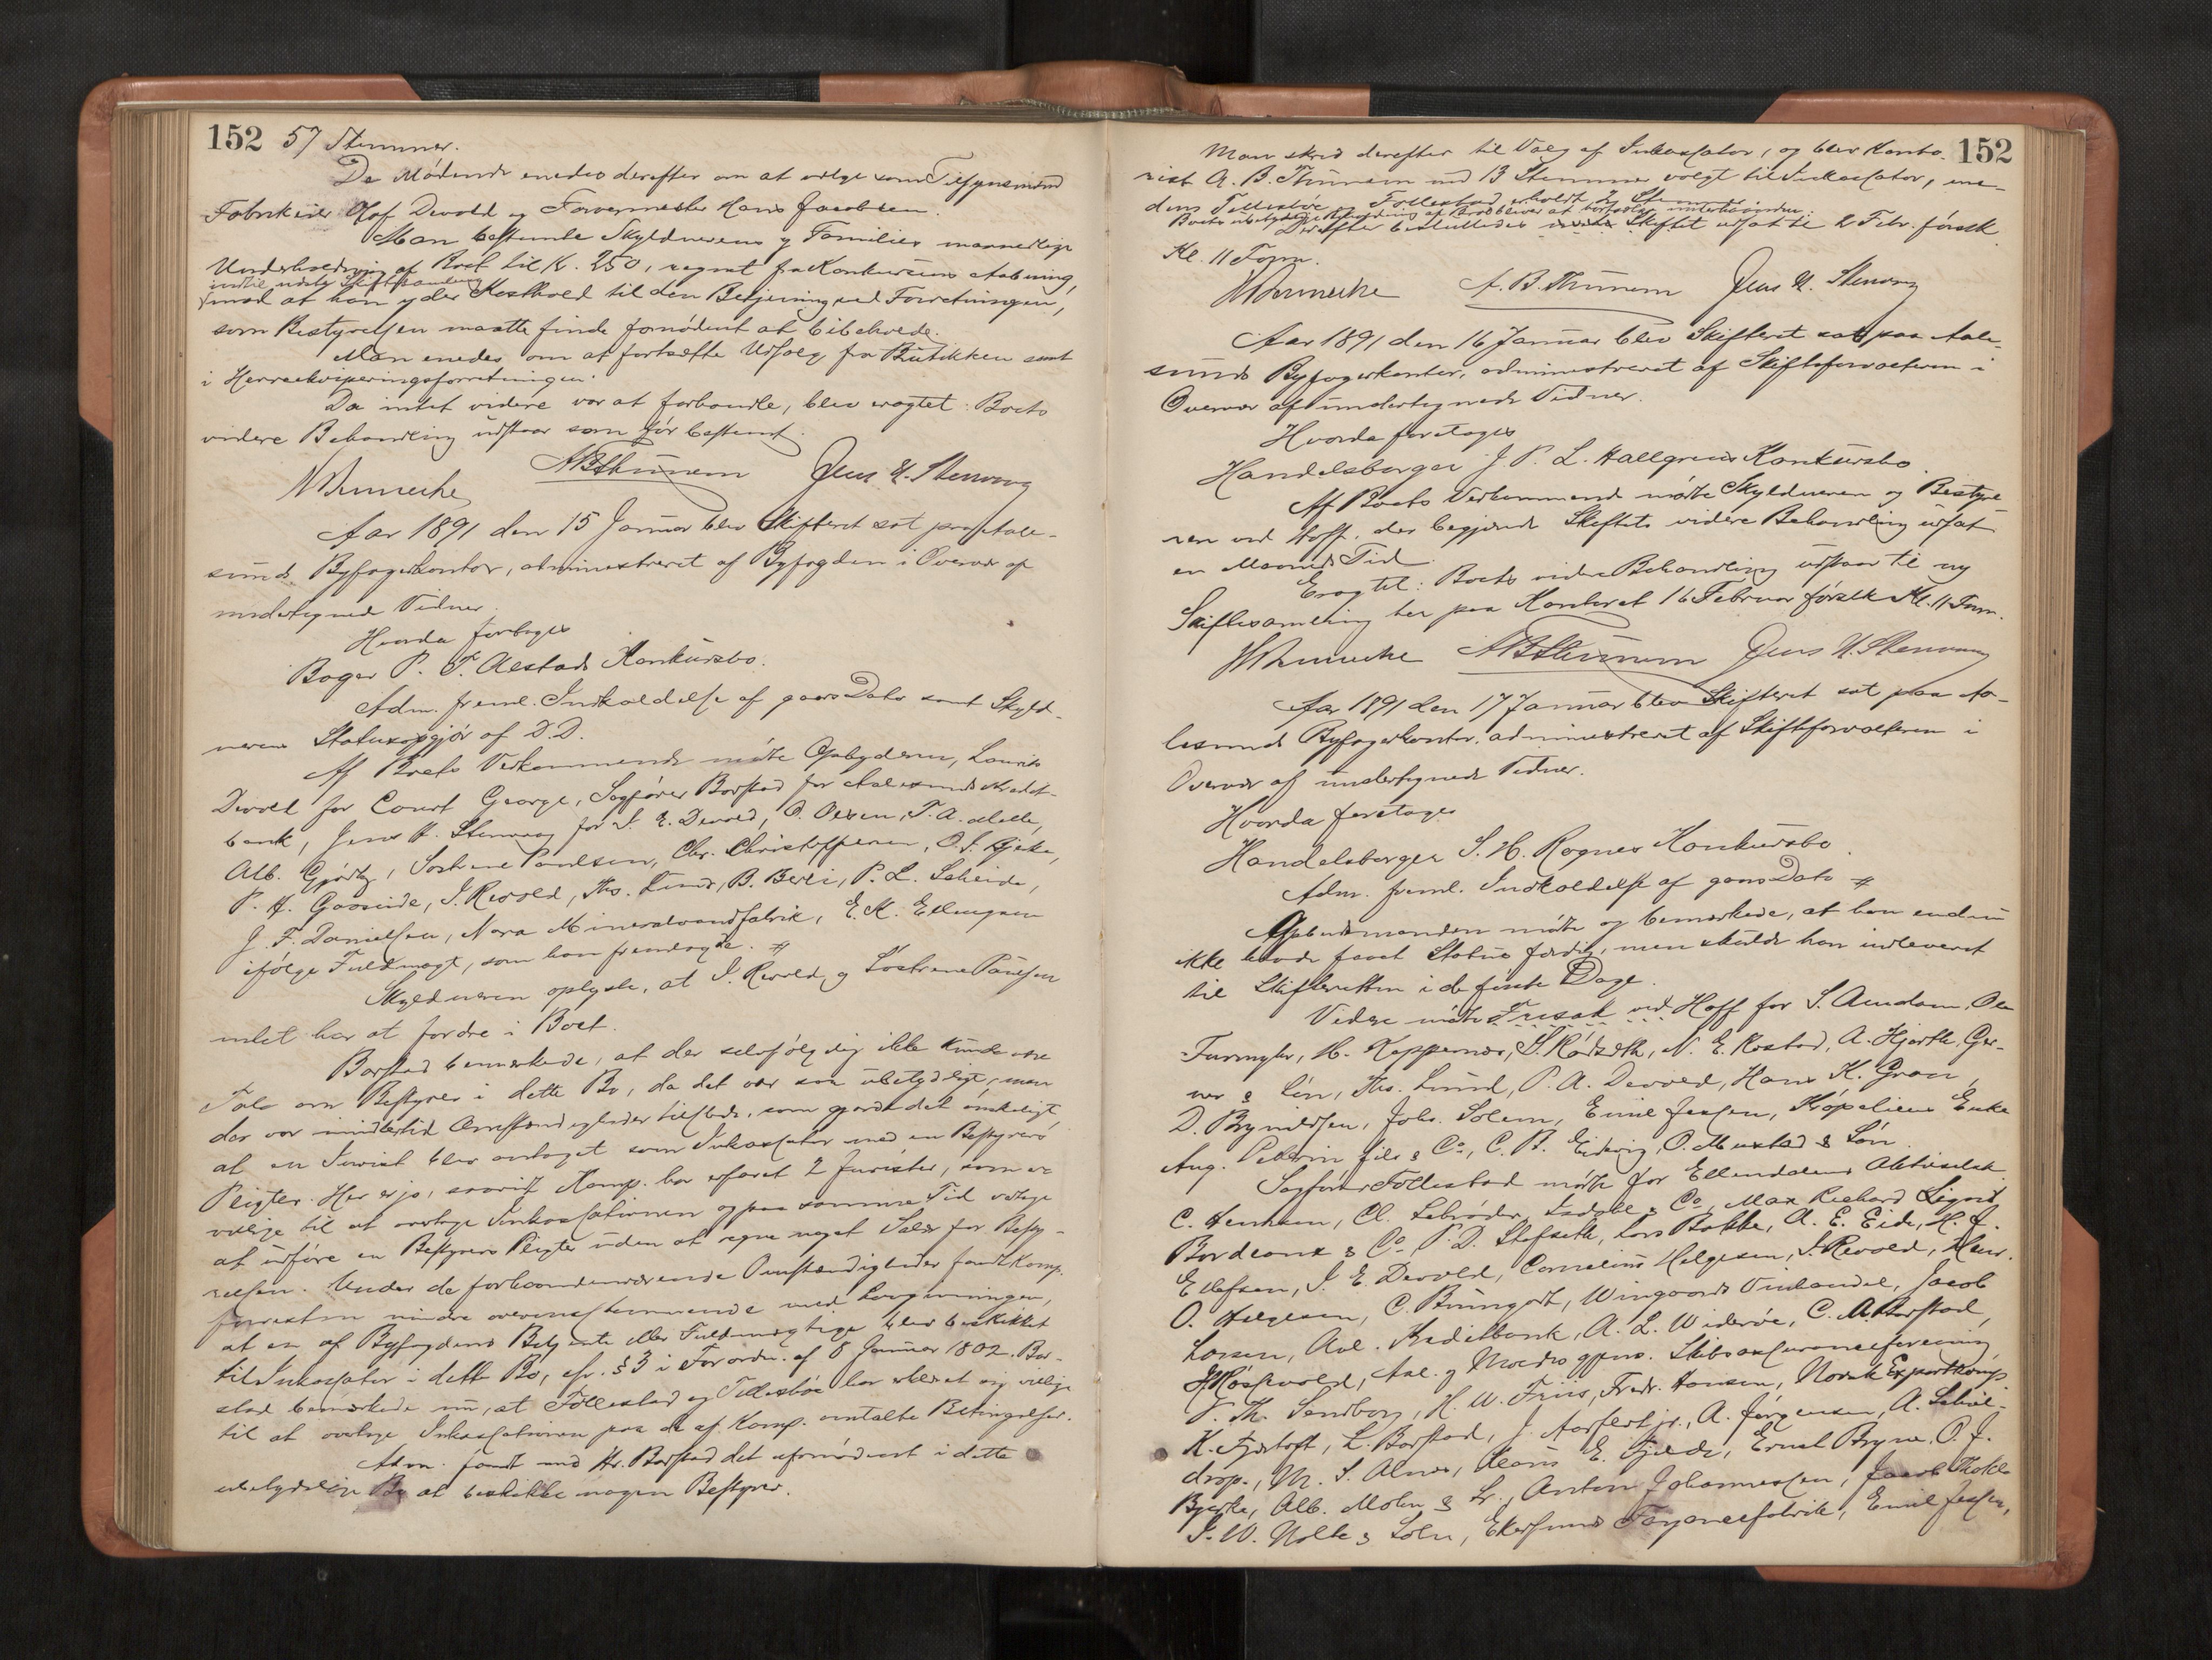 152 57 Stemmer.
De Mødende enedes derefter om at vælge som Tilsynsmænd
Fabrikeier Olaf Devold og Farvermester Hans Jacobsen.
Man bestemte Skyldnerens og Families maanedlige
Underholdning af Boet til Kr. 250, regnet fra Konkursens Aabning,
indtil næste Skiftesamling
mod at han yder Kosthold til den Betjening ved Forretningen,
som Bestyrelsen maatte finde fornødent at bibeholde.
Man enedes om at fortsætte Udsalg fra Butikken samt
i Herreekviperingsforretningen.
Da intet videre var at forhandle, blev eragtet: Boets
videre Behandling udstaar som før bestemt.
A B Thunem Jens U. Stenvaag
Aar 1891 den 15 Januar blev Skifteret sat paa Aale-
sunds Byfogedkontor, administreret af Byfogden i Overvær af
undertegnede Vidner.
Hvorda foretoges
Bager P. T. Alstads Konkursbo.
Adm. freml. Indkaldelse af gaars Dato samt Skyld-
nerens Statusopgjør af D.D.
Af Boets Vedkommende mødte Opbyderen, Laurits
Devold for Court George, Sagfører Barstad for Aalesunds Kredit-
bank, Jens U. Stenvaag for I. E. Devold, O. Olsen, T. A. Melle,
Alb. Gjørtz, Søstrene Paulsen, Chr. Christoffersen, O. J. Bjerke,
P. H. Gaaseide, I. Revold, Ths. Lund, B. Berli, P. L. Scheide,
J. F. Danielsen, Nora Mineralvandfabrik, E. M. Ellingsen
ifølge Fuldmagt, som han fremlagde. #
Skyldneren oplyste, at I. Revold og Søstrene Paulsen
intet har at fordre i Boet.
Barstad bemærkede, at der selvfølgelig ikke kunde være
Tale om Bestyrer i dette Bo, da det var saa ubetydeligt, men
der var imidlertid Omstændigheder tilstede, som gjorde det ønskeligt,
at en Jurist blev antaget som Inkassator med en Bestyrers
Pligter. Her er jo, saavidt Komp. har erfaret 2 Jurister, som er
villige til at overtage Inkassationen og paa samme Tid vælge
at udføre en Bestyrers Pligter uden at regne noget Salær for Besty-
relsen. Under de forhaandenværende Omstændigheder fandt Komp.
forresten mindre overensstemmende med Lovgivningen,
at en af Byfogdens Betjente eller Fuldmægtige blev beskikket
til Inkassator i dette Bo, cfr. § 3 i Forordn. af 8 Januar 1802. Bar-
stad bemærkede nu, at Follestad og Tellesbøe har erklæret sig villige
til at overtage Inkassationen paa de af Komp. omtalte Betingelser.
Adm. fandt med Hr. Barstad det ufornødent i dette
ubetydelige Bo at beskikke nogen Bestyrer.
152
Man skred derefter til Valg af Inkassator, og blev Konto-
rist A. B. Thunem med 13 Stemmer valgt til Inkassator, me-
dens Tellesbøe og Follestad erholdt 2 Stemmer.
Derefter besluttedes Skiftet udsat til 2 Febr. førstk.
Kl. 11 Form.
A. B. Thunem Jens U. Stenvaag
Aar 1891 den 16 Januar blev Skifteret sat paa Aale-
sunds Byfogedkontor, administreret af Skifteforvalteren i
Overvær af undertegnede Vidner.
Hvorda foretoges
Handelsborger J. P. L. Hallgrens Konkursbo.
Af Boets Vedkommende mødte Skyldneren og Bestyre-
ren ved Hoff, der begjærede Skiftets videre Behandling udsat
en Maaneds Tid.
Eragtet: Boets videre Behandling udstaar til ny
Skiftesamling her paa Kontoret 16 Februar førstk. Kl. 11 Form.
A B Thunem Jens U. Stenvaag
Aar 1891 den 17 Januar blev Skifteret sat paa Aa-
lesunds Byfogedkontor, administreret af Skifteforvalteren i
Overvær af undertegnede Vidner.
Hvorda foretoges
Handelsborger S. H. Rognes Konkursbo.
Adm. freml. Indkaldelse af gaars Dato #
Opbudsmanden mødte og bemærkede, at han endnu
ikke havde faaet Status færdig, men skulde han indleveret
til Skifteretten i de første Dage.
Videre mødte Frisak ved Hoff for S. Aundam, Ole
Furmyhr, H. Koppernæs, S. Rødseth, N. E. Kostad, A. Hjorth, Ger-
ner & Søn, Ths. Lund, P. A. Devold, Hans K. Gran,
D. Brynildsen, Johs. Solem, Emil Jessen, Enke
Aug. Pellerin fils & Co, C. R. O. Mustad & Søn.
Sagfører Follestad mødte for Ellendalens Aktieselsk.
C. Hansen, Cl. Isdahl & Co, Max Richard
Bordeaux & Co P. D. Stafseth, Lars Bakke, A. E. Eide, H. J.
Ellefsen, I. E. Devold, Cornelius Helgesen, I. Revold, Henr.
O. Helgesen, C. Wingaards Vinhandel, Jacob
Larsen, Aal. Kreditbank, A. L. Widerøe, C. A. Barstad,
Aal. og Møres gjens. Skibsassuranceforening
P. Th. Sandborg, H. W. Friis, Fredr. Hansen, Norsk Exportkomp.
K. L. Barstad, J. Aarflot jr., A. Jørgensen, A. Schiel-
drop, M. S. Alnæs, E. Fjelde, Ernst Bryne, O. J.
Bjerke, Alb. Mohn & Anton Johannessen, Jacob
I. W. Nolte & Sohn, Ekersunds Fayancefabrik, Emil Jessen,